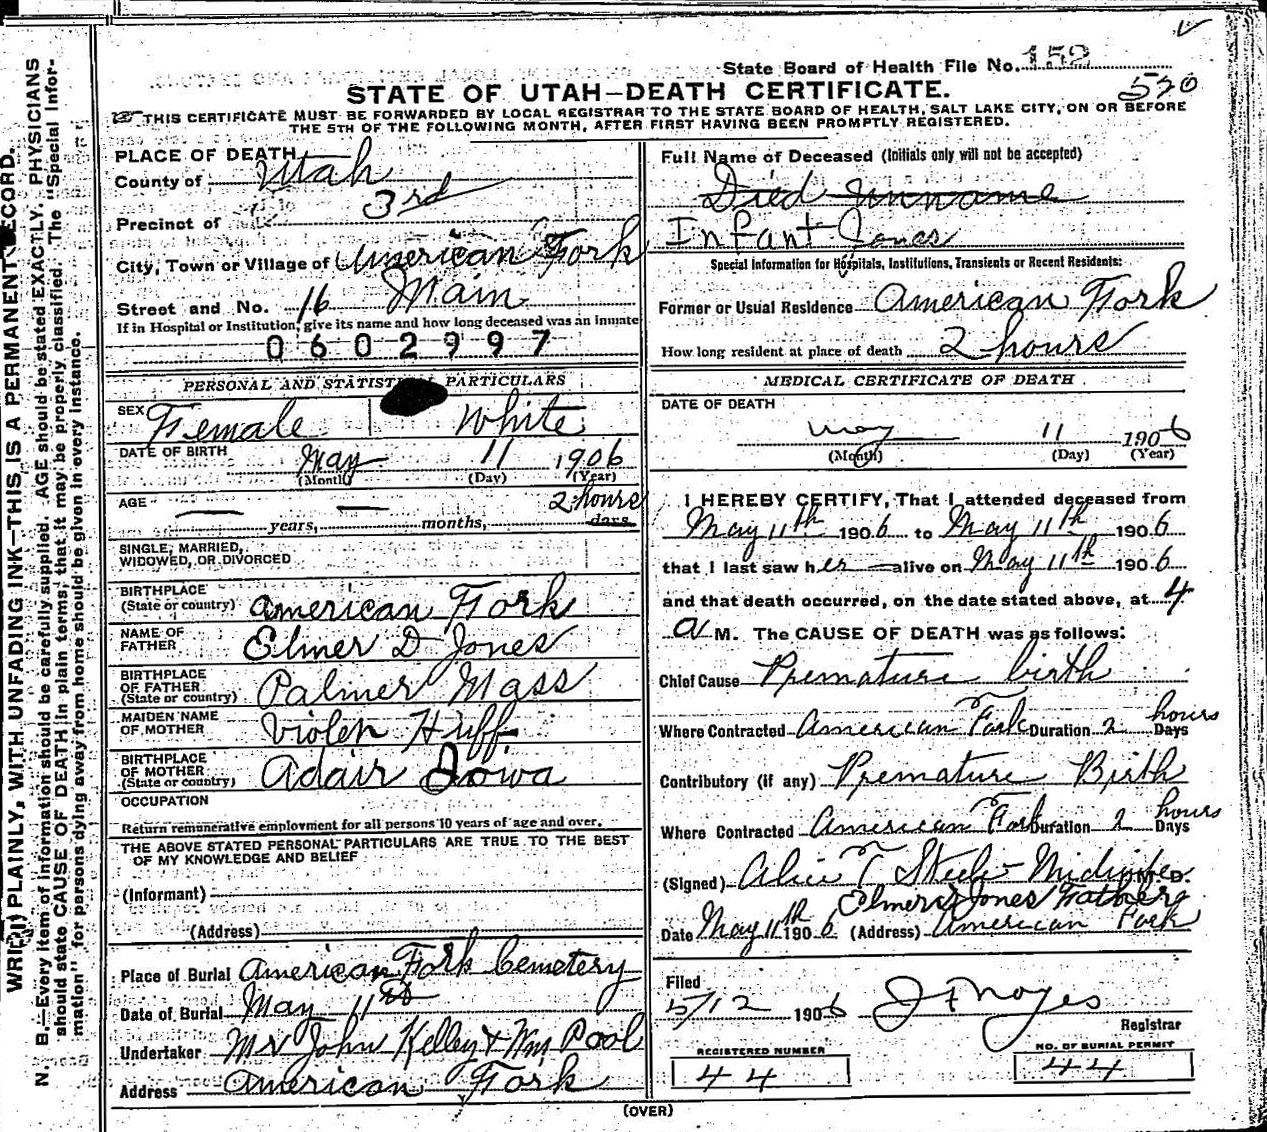 State Board of Health File No. 152
570
STATE OF UTAH—DEATH CERTIFICATE.
THIS CERTIFICATE MUST BE FORWARDED BY LOCAL REGISTRAR TO THE STATE BOARD OF HEALTH, SALT LAKE CITY, ON OR BEFORE
THE 5TH OF THE FOLLOWING MONTH, AFTER FIRST HAVING BEEN PROMPTLY REGISTERED.
PLACE OF DEATH
County of Utah
Precinct of 3rd
City, Town or Village of American Fork
Street and No. 16 Main
If in Hospital or Institution, give its name and how long deceased was an inmate
0602997
PERSONAL AND STATISTICAL PARTICULARS
SEX Female White
DATE OF BIRTH May 11 1906
(Month) (Day) (Year)
AGE — years, — months, 2 hours days
SINGLE, MARRIED,
WIDOWED, OR DIVORCED
BIRTHPLACE
(State or country) American Fork
NAME OF
FATHER Elmer D Jones
BIRTHPLACE
OF FATHER
(State or country) Palmer Mass
MAIDEN NAME
OF MOTHER Huff
BIRTHPLACE
OF MOTHER
(State or country) Adair Iowa
OCCUPATION
Return remunerative employment for all persons 10 years of age and over.
THE ABOVE STATED PERSONAL PARTICULARS ARE TRUE TO THE BEST
OF MY KNOWLEDGE AND BELIEF
(Informant)
(Address)
Place of Burial American Fork Cemetery
Date of Burial May 11th
Undertaker Mr John Kelley & Wm Pool
Address American Fork
Full Name of Deceased (Initials only will not be accepted)
Died Unname
Infant Jones
Special Information for Hospitals, Institutions, Transients or Recent Residents:
Former or Usual Residence American Fork
How long resident at place of death 2 hours
MEDICAL CERTIFICATE OF DEATH
DATE OF DEATH
May 11 1906
(Month) (Day) (Year)
I HEREBY CERTIFY, That I attended deceased from
May 11th 1906 to May 11th 1906
that I last saw her alive on May 11th 1906
and that death occurred, on the date stated above, at 4
A M. The CAUSE OF DEATH was as follows:
Chief Cause Premature birth
Where Contracted American Fork Duration 2 hours Days
Contributory (if any) Premature Birth
Where Contracted American Fork Duration 2 hours Days
(Signed) Alice T Steele Midwife M. D.
Elmer D Jones Father
Date May 11th 1906 (Address) American Fork
Filed
5/12 1906 J F Noyes
Registrar
REGISTERED NUMBER
44
NO. OF BURIAL PERMIT
44
(OVER)
WRITE PLAINLY, WITH UNFADING INK—THIS IS A PERMANENT RECORD.
N. B.—Every item of information should be carefully supplied. AGE should be stated EXACTLY. PHYSICIANS
should state CAUSE OF DEATH in plain terms, that it may be properly classified. The "Special Infor-
mation" for persons dying away from home should be given in every instance.